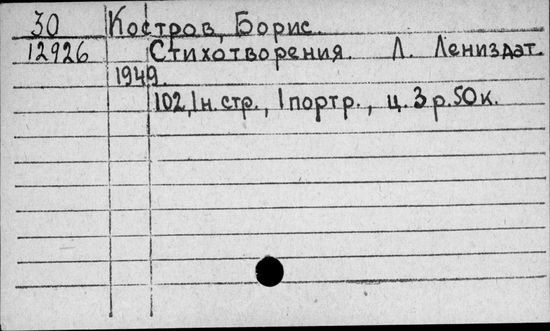 30 Костров, Борис.
12926 Стихотворения. Л. Лениздат.
1949.
102, 1 н. стр., 1 портр., ц. 3 р. 50 к.